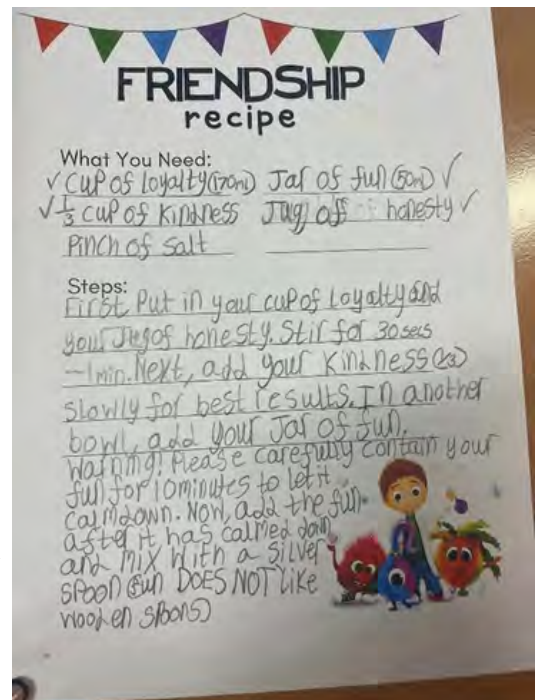 FRIENDSHIP
recipe
What You Need:
✓ Cup of loyalty (170ml) Jar of fun (50ml) ✓
✓ 1/3 cup of kindness Jug off honesty ✓
Pinch of salt
Steps:
First Put in your cup of Loyalty and
your Jug of honesty. Stir for 30 secs
~1 min. Next, add your kindness (1/3)
slowly for best results. In another
bowl, add your Jar of fun.
Warning! Please carefully contain your
fun for 10 minutes to let it
calm down. Now, add the fun
after it has calmed down
and mix with a silver
spoon (fun DOES NOT like
wooden spoons)